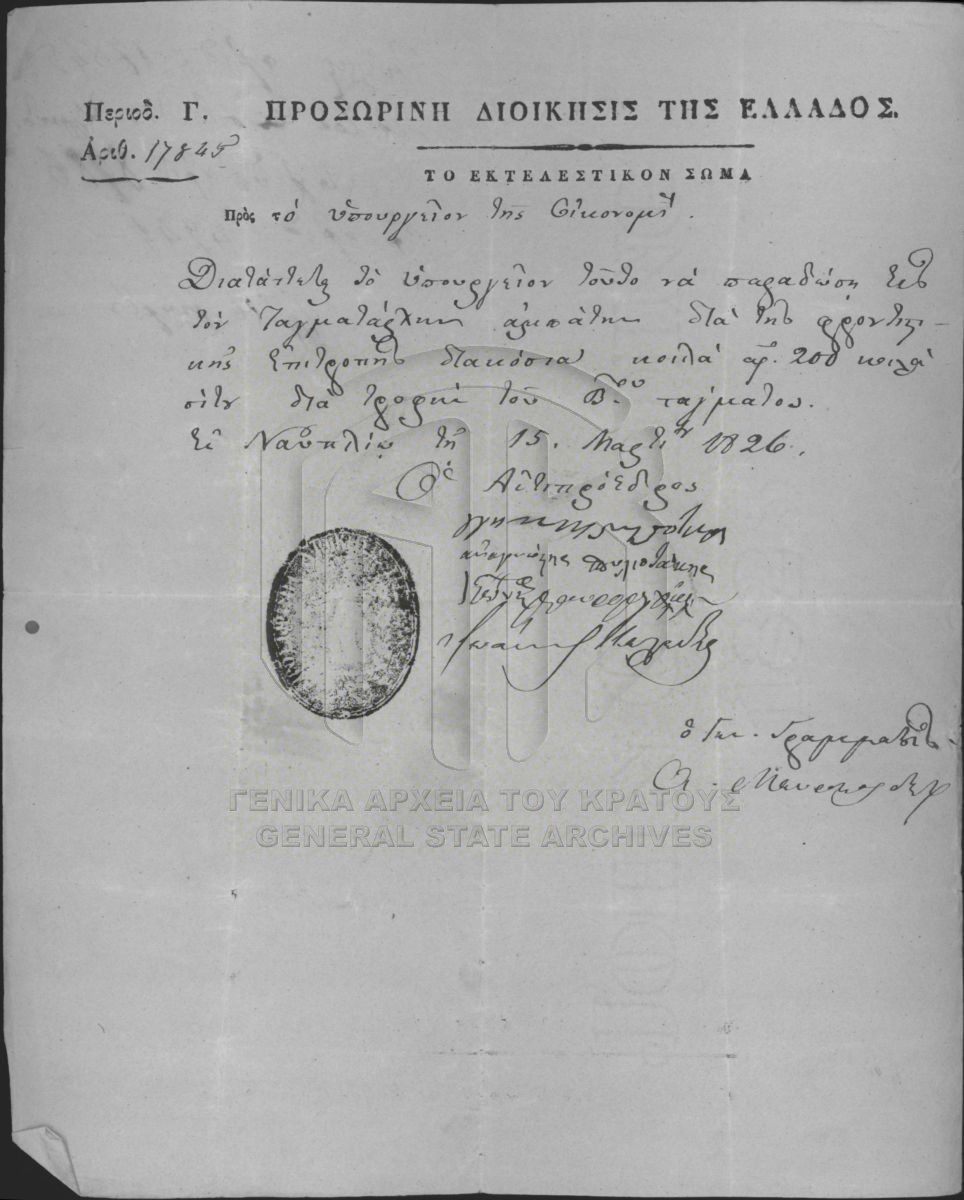 Περιοδ. Γ. ΠΡΟΣΩΡΙΝΗ ΔΙΟΙΚΗΣΙΣ ΤΗΣ ΕΛΛΑΔΟΣ.
Ἀριθ. 17845
ΤΟ ΕΚΤΕΛΕΣΤΙΚΟΝ ΣΩΜΑ
Πρὸς τὸ ὑπουργεῖον τῆς Οἰκονομί.
Διατάττεται τὸ ὑπουργεῖον τοῦτο νὰ παραδώσῃ εἰς
τὸν Ταγματάρχην διὰ τῆς φροντιστι-
κῆς ἐπιτροπῆς διακόσια κοιλὰ ἀρ. 200 κοιλὰ
σίτου διὰ τροφὴν τοῦ Β.ου τάγματος.
Ἐν Ναυπλίῳ τῇ 15. Μαρτίου 1826.
Ὁ Ἀντιπρόεδρος
ἀναγνώστης σπηλιοτάκης
ὁ Γεν. Γραμματεὺς
Α. Μαυροκορδάτος
ΓΕΝΙΚΑ ΑΡΧΕΙΑ ΤΟΥ ΚΡΑΤΟΥΣ
GENERAL STATE ARCHIVES